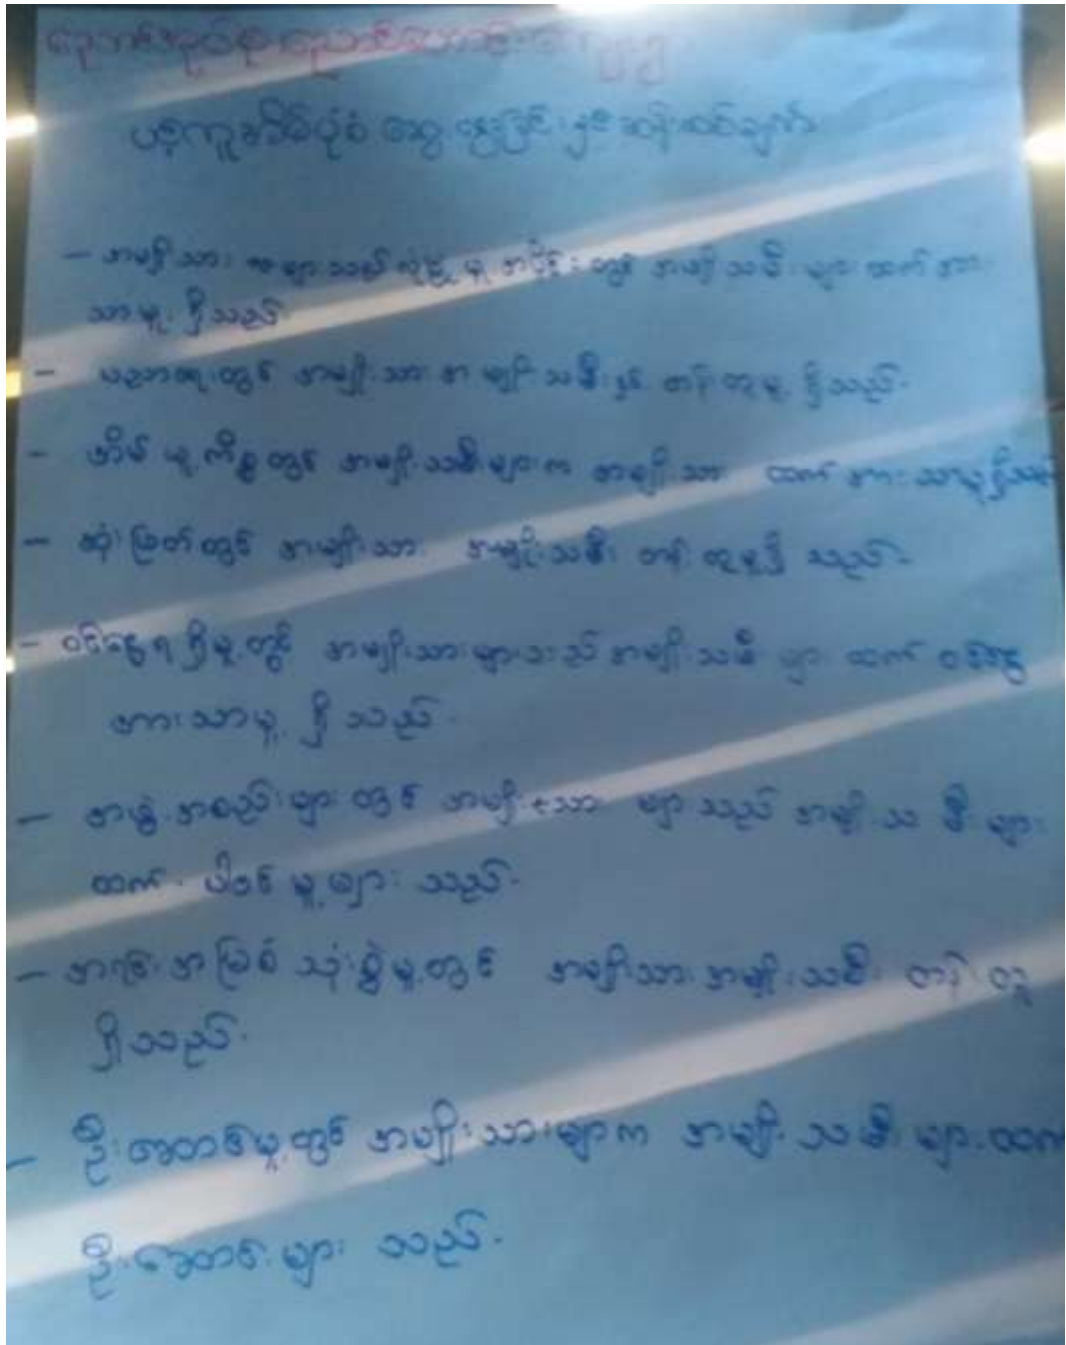 ပင့်ကူအိမ်ပုံစံ ဆွေးနွေးခြင်း
– အမျိုးသား များသည် လှုံ့ အပိုင်း တွင် အမျိုးသမီး များ ထက် အား
သာမှု ရှိသည်
– ပညာရေးတွင် အမျိုးသား အမျိုးသမီး နှင့် တန်းတူမှု ရှိသည်.
– အိမ်မှုကိစ္စတွင် အမျိုးသမီးများက အမျိုးသား ထက် အားသာမှုရှိသည်
– ဆုံးဖြတ်တွင် အမျိုးသား အမျိုးသမီး တန်းတူမှုရှိ သည်.
– ဝင်ငွေရရှိမှုတွင် အမျိုးသားများသည် အမျိုးသမီး များ ထက် ဝင်ငွေ
အားသာမှု ရှိသည်.
– အဖွဲ့အစည်းများ တွင် အမျိုးသား များ သည် အမျိုးသမီး များ
ထက် ပါဝင်မှု များ သည်.
– အရင်းအမြစ် သုံးစွဲမှုတွင် အမျိုးသား အမျိုးသမီး တန်းတူ
ရှိသည်.
– ဦးဆောင်မှုတွင် အမျိုးသားများက အမျိုးသမီး များ ထက်
ဦးဆောင် များ သည်.